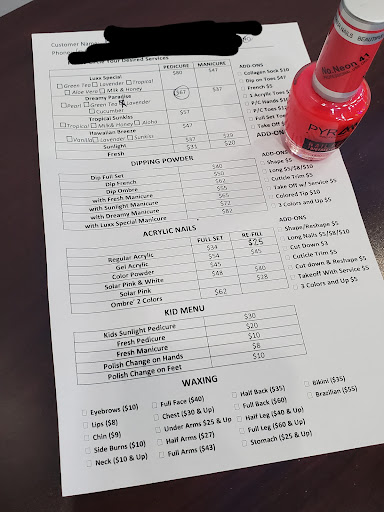 Customer Name
Your Desired Services
PEDICURE MANICURE ADD-ONS
Luxx Special $80 $47 Collagen Sock $10
Green Tea Lavender Tropical Dip on Toes $47
Aloe Vera Milk & Honey French $5
Dreamy Paradise $67 $37 1 Acrylic Toes
Pearl Green Tea Lavender P/C Hands
Cucumber P/C Toes
Tropical Sunkiss $57 Full Set Toe
Tropical Milk & Honey Aloha Take Off
Hawaiian Breeze
Vanilla Lavender Sunkiss ADD-ON
Sunlight $37 $29
Fresh $31 $20
DIPPING POWDER
Dip Full Set $40 Shape $5
Dip French $50 Long $5/$8/$10
Dip Ombre $62 Cuticle Trim $5
with Fresh Manicure $55 Take Off w/ Service $5
with Sunlight Manicure $65 Colored Tip $10
with Dreamy Manicure $72 3 Colors and Up $5
with Luxx Special Manicure $82
ACRYLIC NAILS ADD-ONS
FULL SET RE FILL Shape/Reshape $5
Regular Acrylic $34 $25 Long Nails $5/$8/$10
Gel Acrylic $54 $45 Cut Down $3
Color Powder $45 Cuticle Trim $5
Solar Pink & White $48 $40 Cut down & Reshape $5
Solar Pink $28 Takeoff With Service $5
Ombre' 2 Colors $62 3 Colors and Up $5
KID MENU
Kids Sunlight Pedicure $30
Fresh Pedicure $20
Fresh Manicure $10
Polish Change on Hands $8
Polish Change on Feet $10
WAXING
Eyebrows ($10) Full Face ($40) Half Back ($35) Bikini ($35)
Lips ($8) Chest ($30 & Up) Full Back ($60) Brazilian ($55)
Chin ($9) Under Arms $25 & Up Half Leg ($40 & Up)
Side Burns ($10) Half Arms ($27) Full Leg ($60 & Up)
Neck ($10 & Up) Full Arms ($43) Stomach ($25 & Up)
No.Neon 41